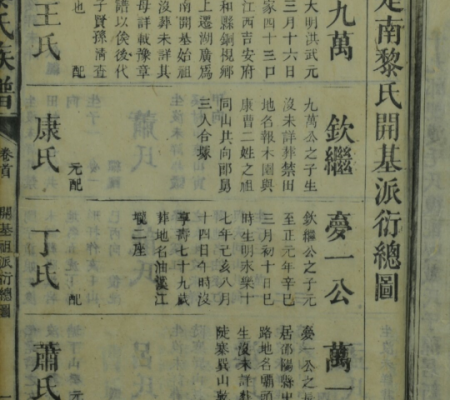 南黎氏開基派衍總圖
九萬
大明洪武元
三月十六日
家四十三口
江西吉安府
和縣銅覌鄉
上遷湖廣為
南開基始祖
沒葬未詳其
母詳載豫章
譜以俟後代
子賢孫清查
也 配
王氏
欽繼
九萬公之子生
沒未詳葬禁田
地名報木園與
康曹二姓之祖
同山共向郎舅
三人合塚
元配
康氏
夒一公
欽繼公之子元
至正元年辛巳
三月初十日巳
時生明永樂十
七年己亥八月
十四日午時沒
享壽七十九歲
葬地名油江
壠二座
配
丁氏
萬一
一公之
居邵陽縣中
路地名壩頭
生沒未詳葬
陡寨山
元
蕭氏
氏族譜
卷首
開基祖派衍總圖